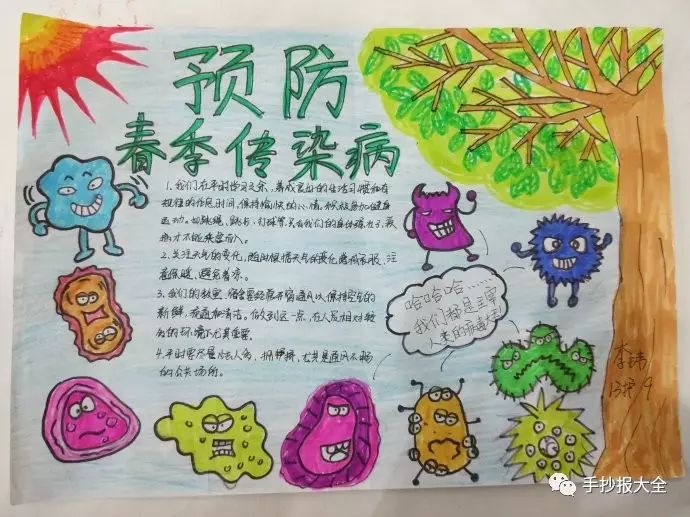 预防
春季传染病
1.我们在平时学习之余，养成良好的生活习惯和有
规律的作息时间，保持愉快的心情。积极参加健身
运动。如跳绳，跑步，打球等，只有我们的身体强壮了，疾
病才不能乘虚而入。
2.关注天气的变化，随时根据天气的变化增减衣服，注
意保暖，避免着凉。
3.我们的教室，宿舍要经常开窗通风以保持空气的
新鲜，流通和清洁。做到这一点，在人员相对较
多的环境下尤其重要。
4.平时要尽量少去人多，拥挤，尤其是通风不畅
的公共场所。
哈哈哈……
我们都是主宰
人类的病毒大王
李玮
13护9
手抄报大全